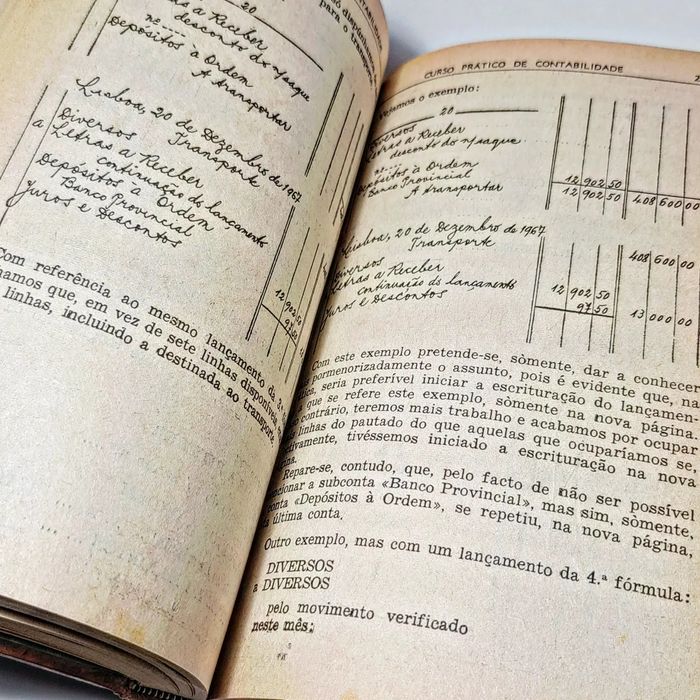 20
as a Receber
desconto do n/ saque
nº ....
Depósitos à Ordem
A transportar
Lisboa, 20 de Dezembro de 1967
Diversos Transporte
a Letras a Receber
continuação do lançamento
Depósitos à Ordem
Banco Provincial
Juros e Descontos
12 902 50
97 50
Com referência ao mesmo lançamento da 3.ª
que, em vez de sete linhas disponíveis
linhas, incluindo a destinada ao transporte
para o
CURSO PRÁTICO DE CONTABILIDADE
Vejamos o exemplo:
20
Diversos
Letras a Receber
desconto do n/ saque
nº ....
Depósitos à Ordem
Banco Provincial 12 902 50
A transportar 12 902 50 408 600 00
Lisboa, 20 de Dezembro de 1967
Transporte 408 600 00
Diversos
Letras a Receber
continuação do lançamento 12 902 50
Juros e Descontos 97 50 13 000 00
Com este exemplo pretende-se, sòmente, dar a conhecer
pormenorizadamente o assunto, pois é evidente que, na
seria preferível iniciar a escrituração do lançamen-
a que se refere este exemplo, sòmente na nova página.
contrário, teremos mais trabalho e acabamos por ocupar
linhas do pautado do que aquelas que ocuparíamos se,
tivéssemos iniciado a escrituração na nova
Repare-se, contudo, que, pelo facto de não ser possível
a subconta «Banco Provincial», mas sim, sòmente,
conta «Depósitos à Ordem», se repetiu, na nova página,
a última conta.
Outro exemplo, mas com um lançamento da 4.ª fórmula:
DIVERSOS
a DIVERSOS
pelo movimento verificado
neste mês: